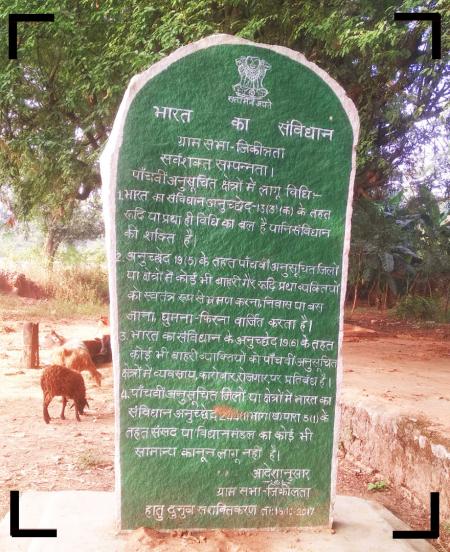 सत्यमेव जयते
भारत का संविधान
ग्राम सभा-जिकीलता
सर्वशक्त सम्पन्नता।
पाँचवीं अनुसूचित क्षेत्रों में लागू विधि:-
1. भारत का संविधान अनुच्छेद-13(3)(क) के तहत
रूढ़ि या प्रथा ही विधि का बल है यानि संविधान
की शक्ति है।
2. अनुच्छेद 19(5) के तहत पाँचवीं अनुसूचित जिलों
या क्षेत्रों में कोई भी बाहरी गैर रूढ़ि प्रथा व्यक्तियों
को स्वतंत्र रूप से भ्रमण करना, निवास या बस
जाना, घुमना-फिरना वर्जित करता है।
3. भारत का संविधान के अनुच्छेद 19(6) के तहत
कोई भी बाहरी व्यक्तियों को पाँचवीं अनुसूचित
क्षेत्रों में व्यवसाय, कारोबार, रोजगार पर प्रतिबंध है।
4. पाँचवीं अनुसूचित जिलों या क्षेत्रों में भारत का
संविधान अनुच्छेद भाग(ख) पारा 5(1) के
तहत संसद या विधान मंडल का कोई भी
सामान्य कानून लागू नहीं है।
आदेशानुसार
ग्राम सभा-जिकीलता
हातु दुनुब सशक्तिकरण ता:-15-10-2017